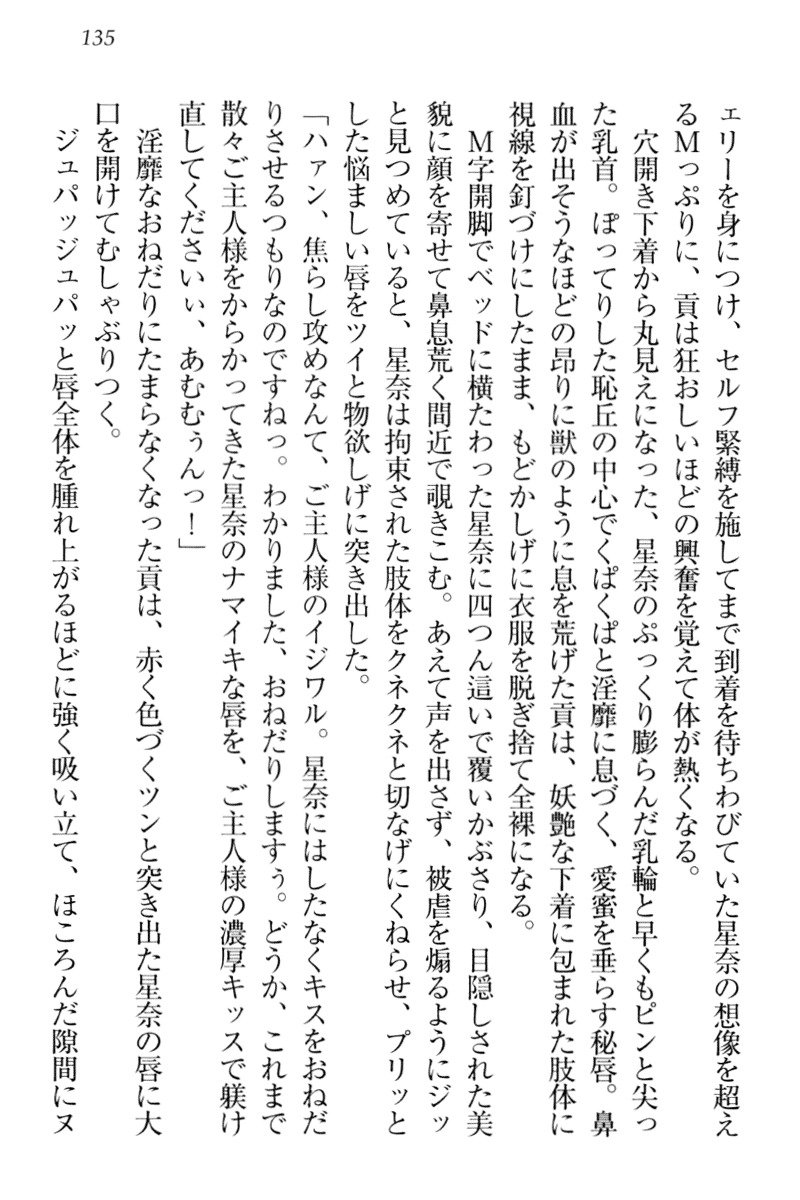 135
ェリーを身につけ、セルフ緊縛を施してまで到着を待ちわびていた星奈の想像を超え
るＭっぷりに、貢は狂おしいほどの興奮を覚えて体が熱くなる。
穴開き下着から丸見えになった、星奈のぷっくり膨らんだ乳輪と早くもピンと尖っ
た乳首。ぽってりした恥丘の中心でくぱくぱと淫靡に息づく、愛蜜を垂らす秘唇。鼻
血が出そうなほどの昂りに獣のように息を荒げた貢は、妖艶な下着に包まれた肢体に
視線を釘づけにしたまま、もどかしげに衣服を脱ぎ捨て全裸になる。
Ｍ字開脚でベッドに横たわった星奈に四つん這いで覆いかぶさり、目隠しされた美
貌に顔を寄せて鼻息荒く間近で覗きこむ。あえて声を出さず、被虐を煽るようにジッ
と見つめていると、星奈は拘束された肢体をクネクネと切なげにくねらせ、プリッと
した悩ましい唇をツイと物欲しげに突き出した。
「ハァン、焦らし攻めなんて、ご主人様のイジワル。星奈にはしたなくキスをおねだ
りさせるつもりなのですねっ。わかりました、おねだりしますぅ。どうか、これまで
散々ご主人様をからかってきた星奈のナマイキな唇を、ご主人様の濃厚キッスで躾け
直してくださいぃ、あむむぅんっ！」
淫靡なおねだりにたまらなくなった貢は、赤く色づくツンと突き出た星奈の唇に大
口を開けてむしゃぶりつく。
ジュパッジュパッと唇全体を腫れ上がるほどに強く吸い立て、ほころんだ隙間にヌ